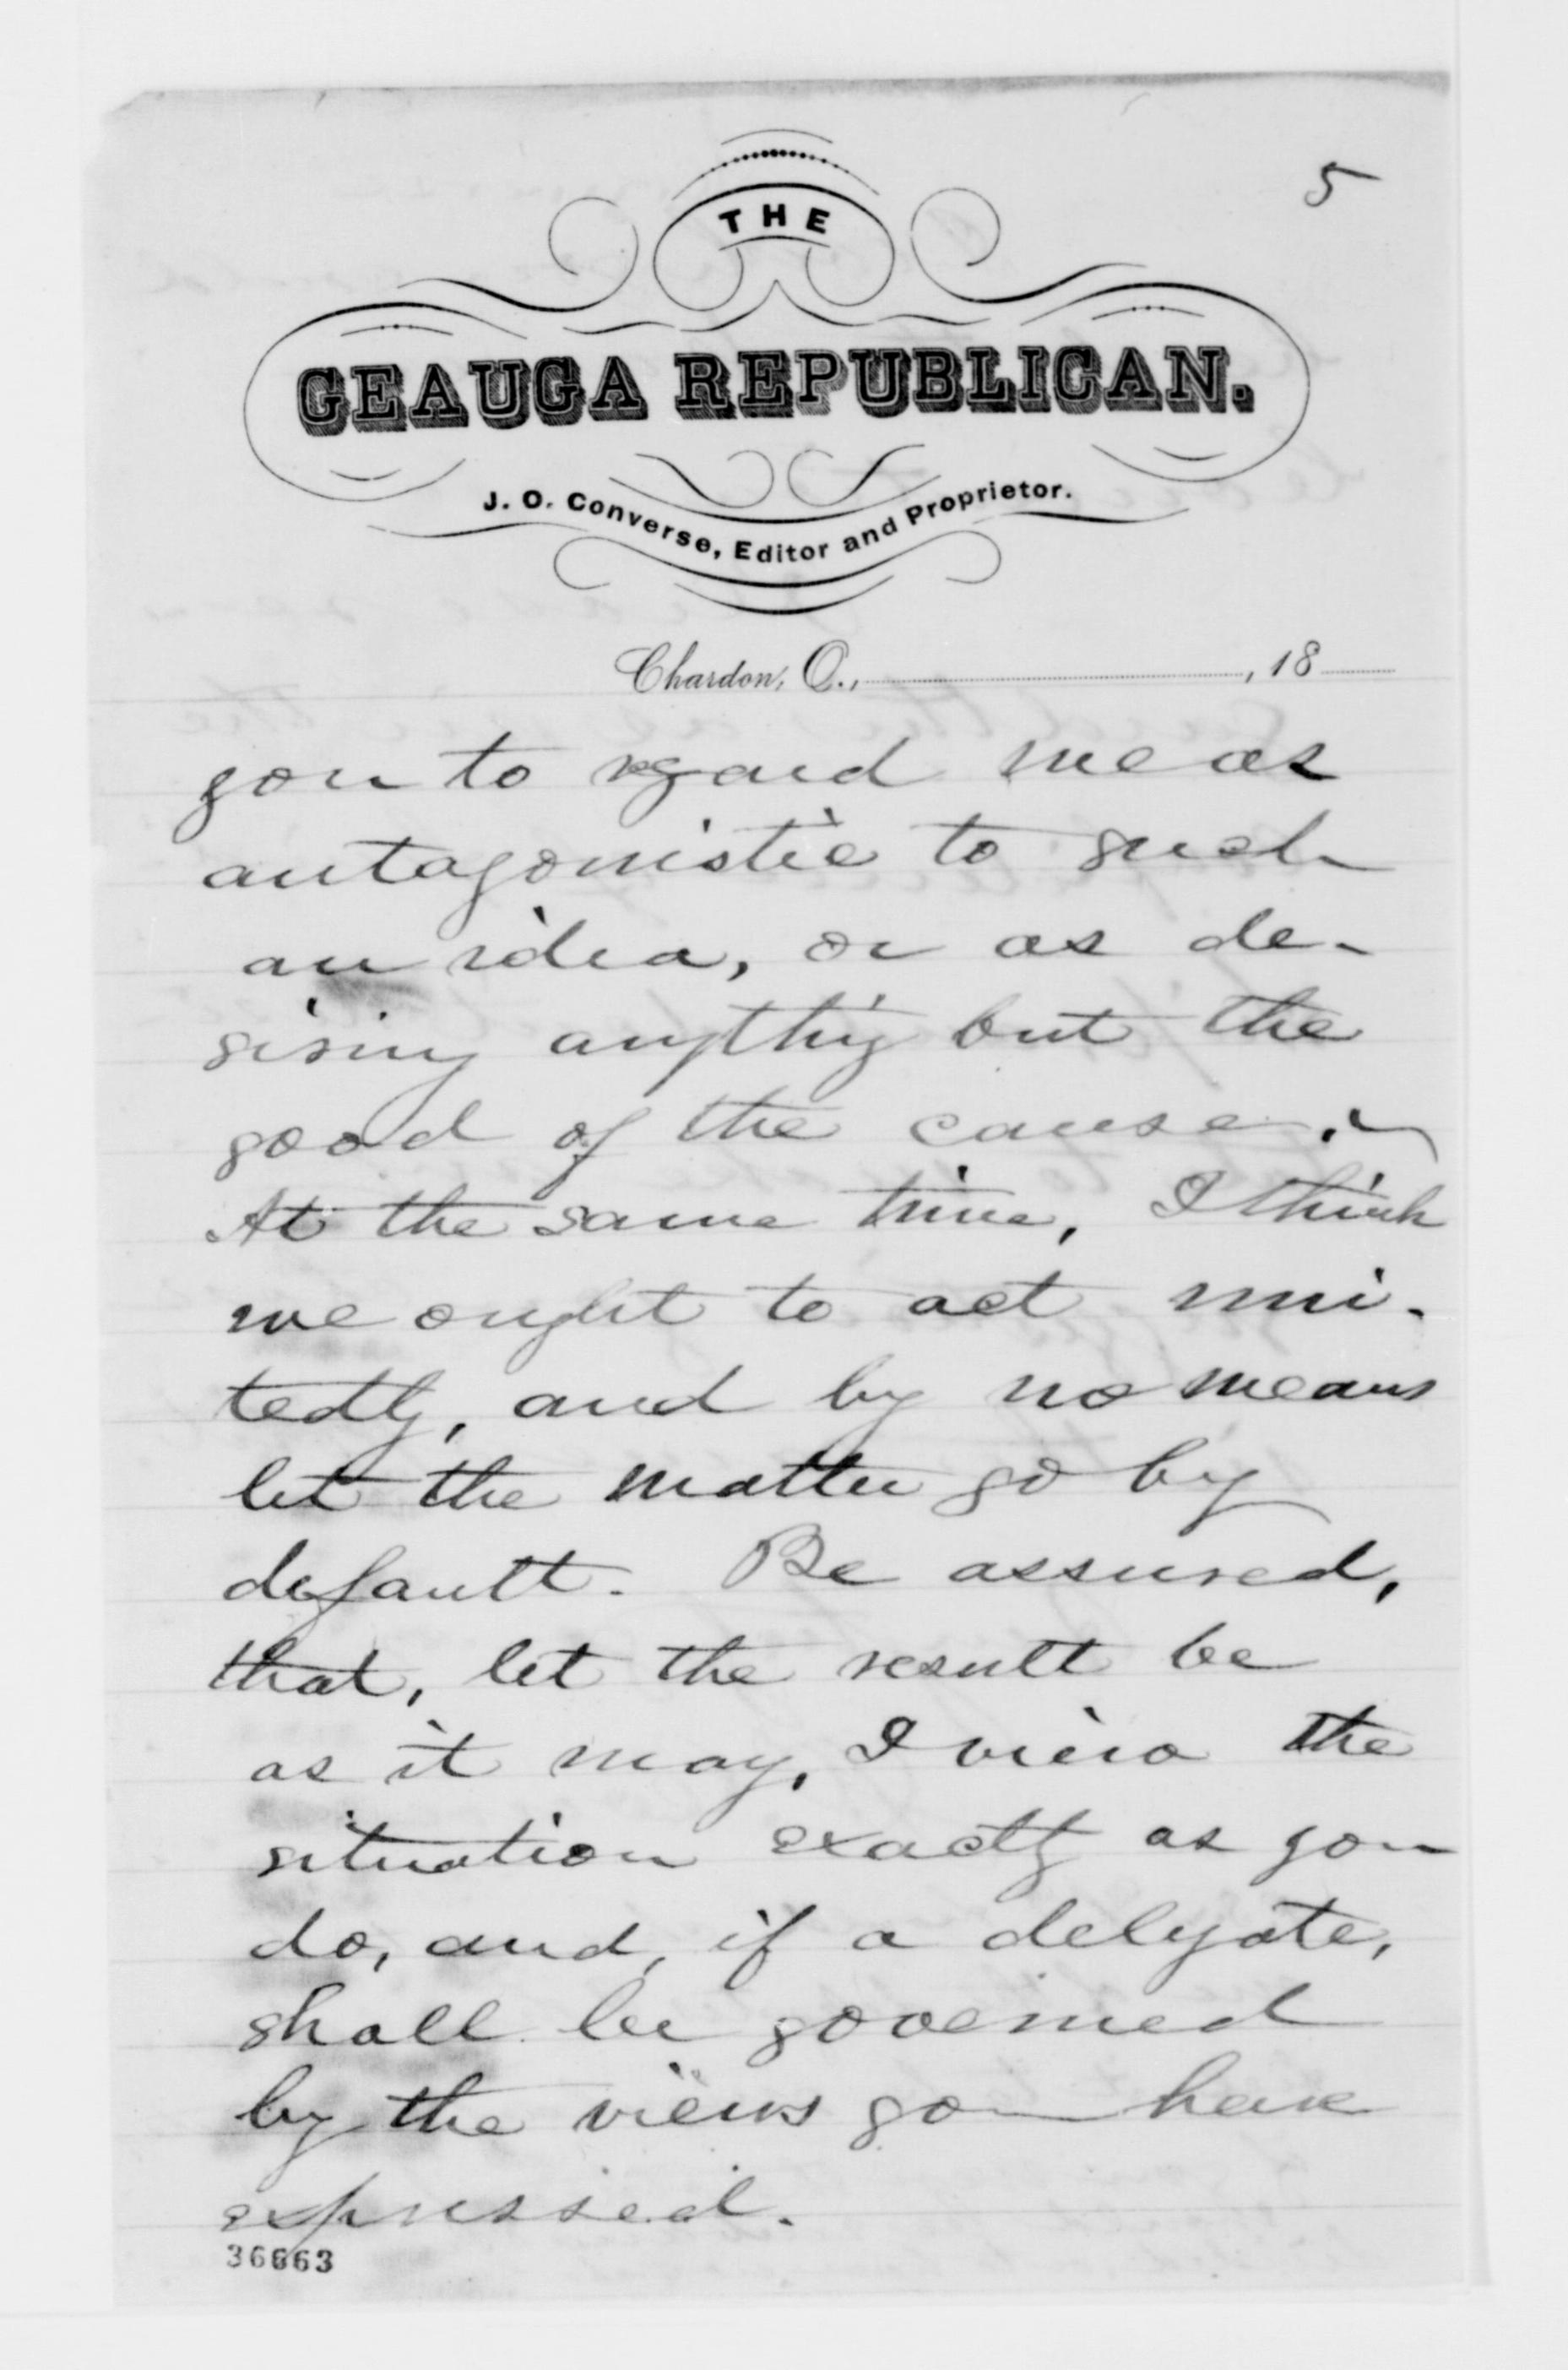 5
THE
GEAUGA REPUBLICAN.
J. O. Converse, Editor and Proprietor.
Chardon, O., , 18
you to regard me as
antagonistic to such
an idea, or as de-
siring anything but the
good of the cause.
At the same time, I think
we ought to act uni-
tedly, and by no means
let the matter go by
default. Be assured,
that, let the result be
as it may, I view the
situation exactly as you
do, and, if a delegate,
shall be governed
by the views you have
expressed.
36663